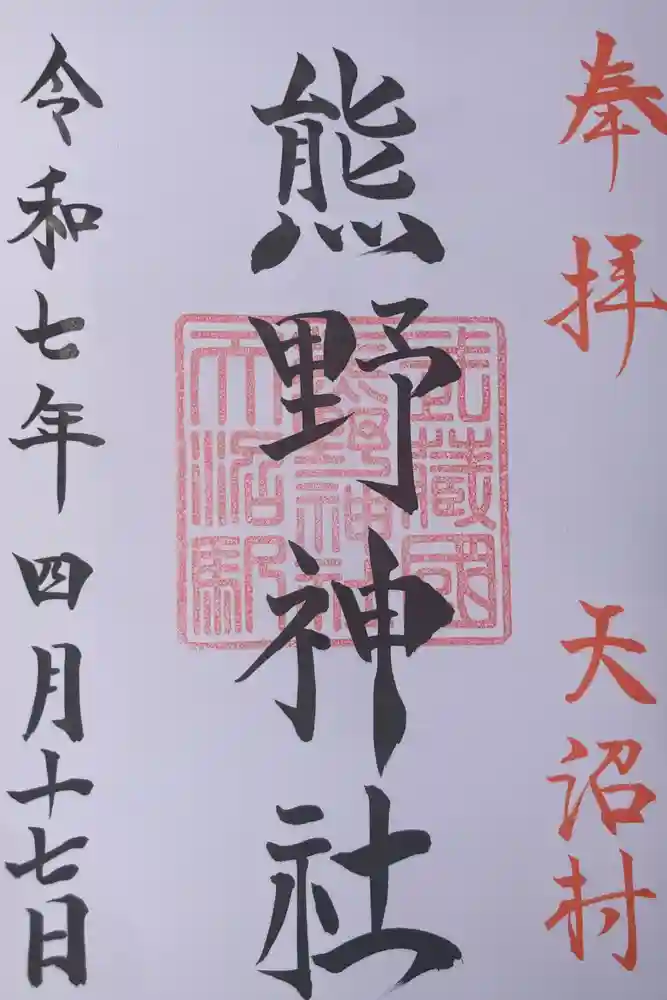 奉拝　天沼村
熊野神社
武蔵國
熊野神社
天沼駅
令和七年四月十七日